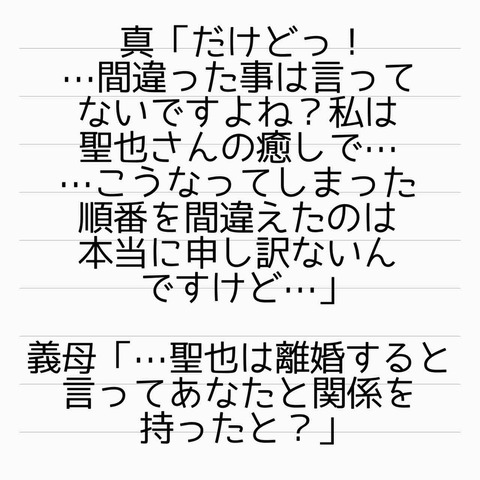 真「だけどっ！
…間違った事は言って
ないですよね？私は
聖也さんの癒しで…
…こうなってしまった
順番を間違えたのは
本当に申し訳ないん
ですけど…」
義母「…聖也は離婚すると
言ってあなたと関係を
持ったと？」